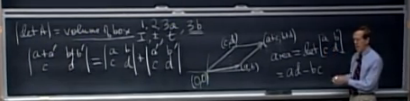 |det A| = volume of box 1, 2, 3a, 3b
|a+a' b+b'| = |a b| + |a' b'|
|c d| |c d| |c d|
(c,d)
(a+c, b+d)
(a,b)
(0,0)
area = det [a b]
[c d]
= ad - bc